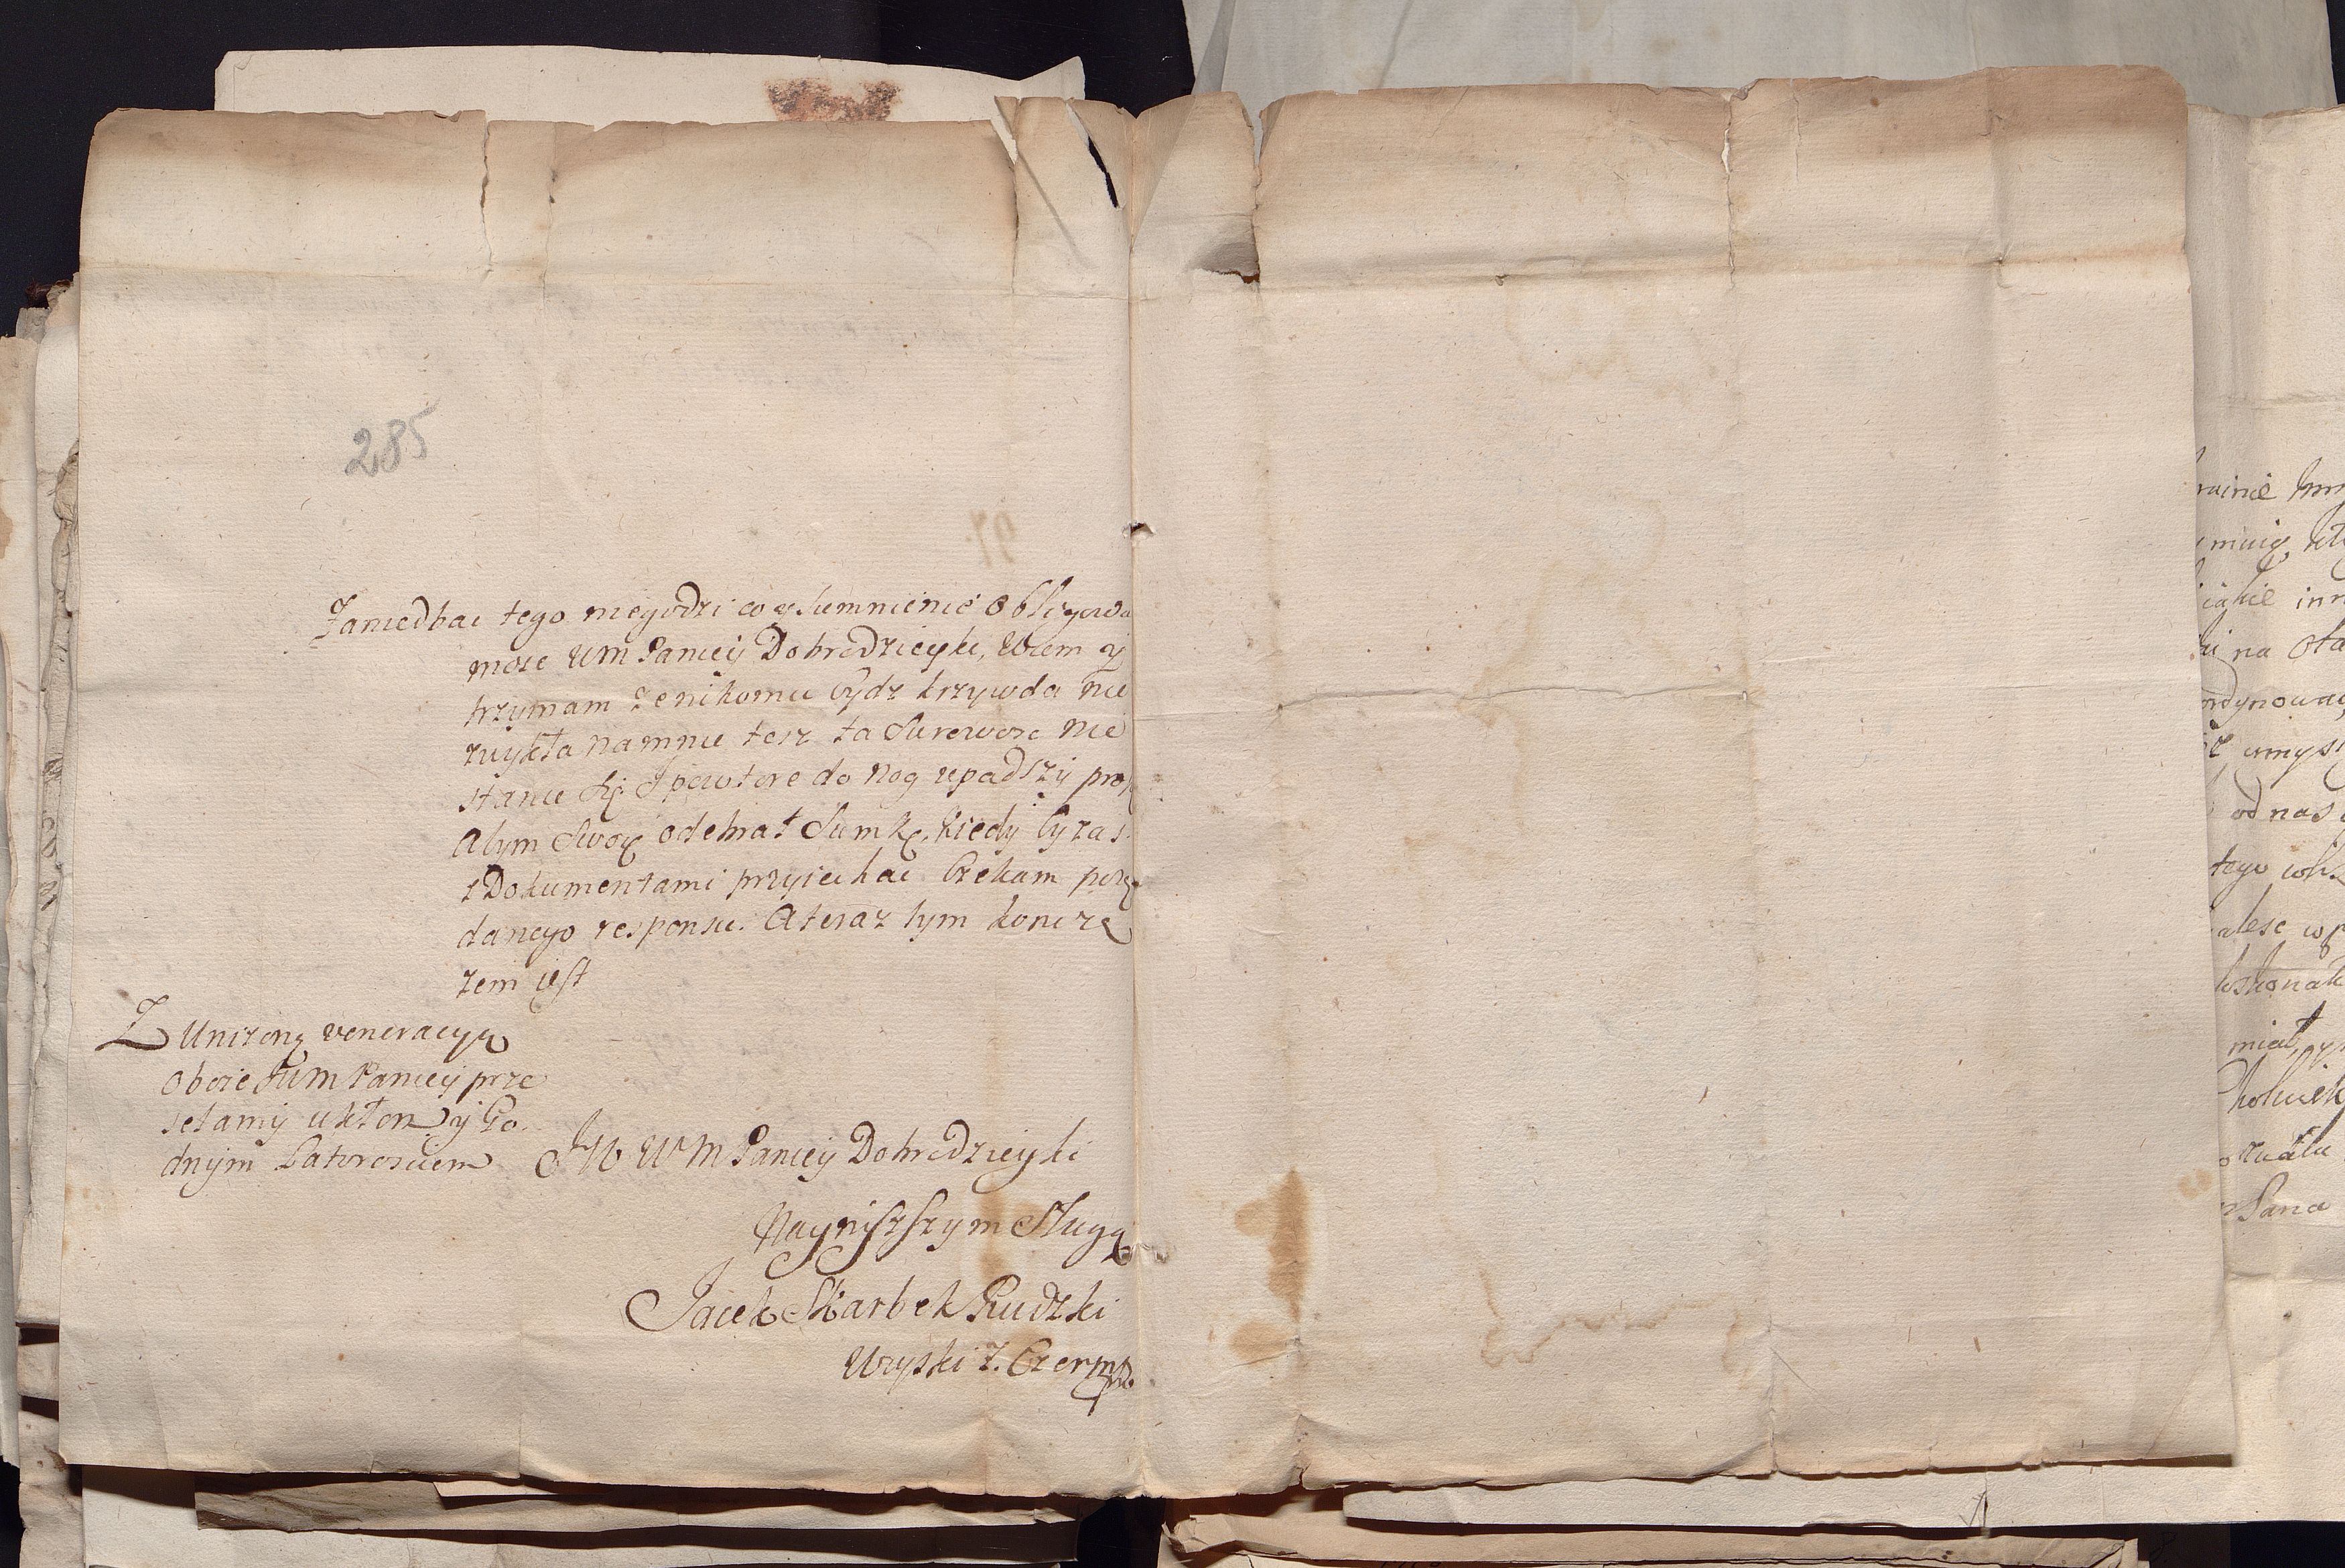 285
Zaniedbac tego niegodzi co y Sumnienie Obligowa
moze WM Paniey Dobrodzieyki, Wiem y
trzymam ze nikomu bydz krzywda nie
zwykła namnie tesz ta Surowosc nie
stanie się I powtore do Nog upadszy pros
Abym Swoę odebrał Sumkę, kiedy by zas
z Dokumentami przyiechac Czekam pożą
danego responsu. A teraz tym koncze
zem iest
Z Unizoną veneracyą
oboie WM Paniey prze
sełamy ukłon y Go
dnym Latoroslem
JW WM Paniey Dobrodzieyki
Nayniszszym Sługą
Jacek Skarbek Rudzki
Wzyski Z. Czer
rainie
inn
na
ordynowac
umysl
od nas
tego
miał
Pana